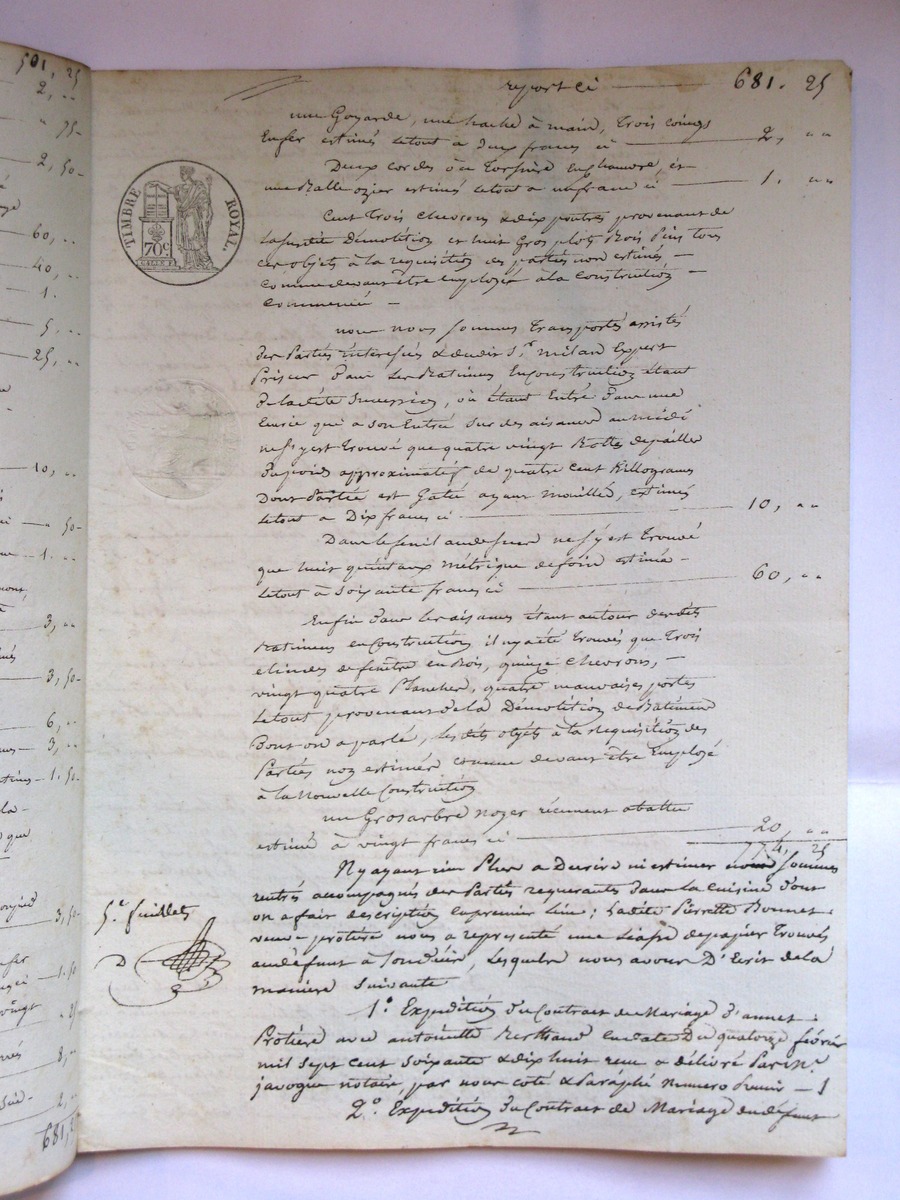 501, 25
2, ..
" 75
2, 50
60, ..
40, ..
1.
5, ..
25, ..
10, ..
50
1. ..
3, ..
3, 50
6, ..
3, ..
1. 50
3, 50
1. 50
8, ..
2, ..
681,
report ci 681. 25
TIMBRE ROYAL.
70c
une Goyarde, une hache à main, Trois coings
Enfer estimés letout a deux francs ci 2, " "
Deux cordes à Enchanvre, et
une Balle ozier estimés letout a unfranc ci 1. " "
Cent Trois Chevrons & dix poutres provenant de
Démolition et huit Gros plots Bois Pins tous
ces objets à la requisition des parties non estimés —
comme devant être employés à la Construction —
Commencée —
nous nous sommes Transportés assistés
des Parties intéressés & dudit Sr. milan Expert
Priseur Dans Les Batimens Enconstruction étant
Deladite Succession, où étant Entré Dans une
Ecurie qui a son Entrée sur des aisances au midi
nesy est Trouvé que quatre vingt Bottes depailles
Dupoids approximatif de quatre cent Killograms
Dont Partie est Gatée ayant mouillée, estimés
letout a Dix francs ci 10, " "
Dans lefenil audessus nesy est Trouvé
que huit quintaux métrique defoin estimés
letout à Soixante francs ci 60, " "
Enfin Dans les aisances étant autour desdits
Batimens enConstruction il nyaété trouvés que Trois
defenêtre en Bois, quinze Chevrons, —
vingt quatre Plancher, quatre mauvaises portes
Letout provenant dela Démolition de Batiment
Dont on a parlé, lesdits objets à la Requisition des
Parties non estimés comme devant être Employé
à la Nouvelle Construction
un Grosarbre noyer récement abattu
estimé à vingt francs ci 20, " "
774, 25
Nyayant rien Plus a Decrire ni estimer nous sommes
rentrés accompagnés des Parties requerants dans la Cuisine dont
on afait description Enpremier lieu; Ladite Pierrette Bonnet
veuve protière nous a représenté une Liasse depapier Trouvés
audéfunt à sondécès, Lesquelles nous avons D'Ecrit dela
manière suivante
5e. feuillet
1.° Expédition du Contrat de Mariage d'annet
Protière avec antoinette Berthaud Endate Du quatorze février
mil sept cent soixante & dix huit recu & délivré Par Me.
javogue notaire, par nous coté & Paraphé Numero Premier — 1
2.° Expédition du Contrat de Mariage dudéfunt